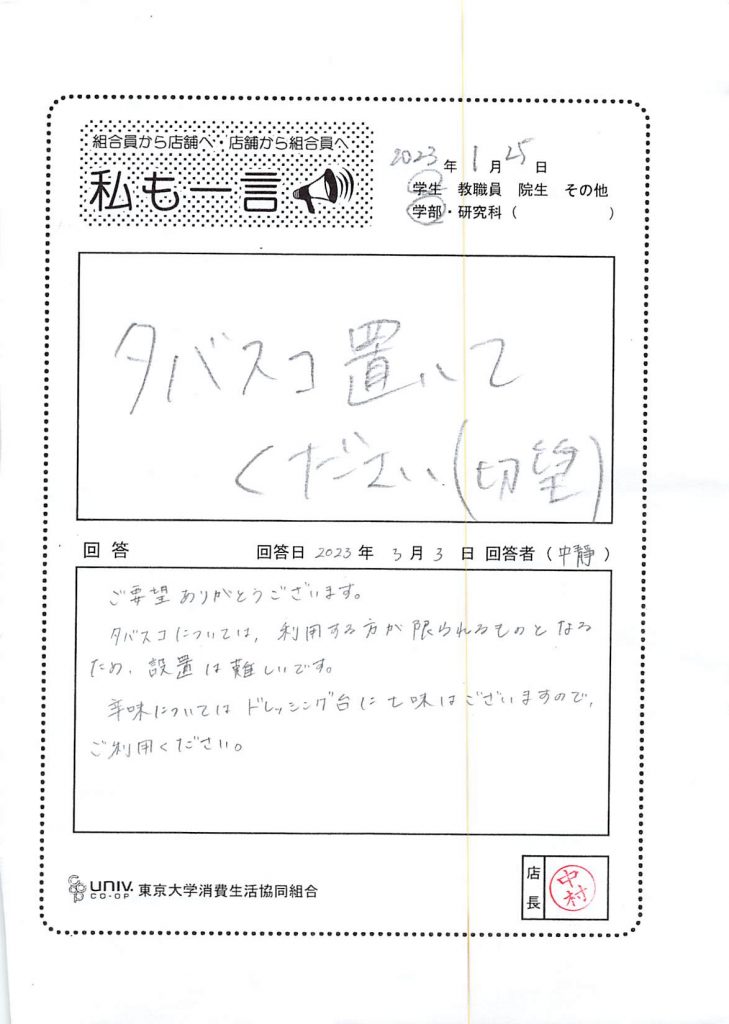 組合員から店舗へ・店舗から組合員へ
私も一言
2023年1月25日
学生 教職員 院生 その他
学部・研究科( )
タバスコ置いて
ください(切望)
回答 回答日 2023年 3月3日 回答者(中静)
ご要望ありがとうございます。
タバスコについては、利用する方が限られるものとなる
ため、設置は難しいです。
辛味についてはドレッシング台に七味はございますので、
ご利用ください。
coop UNIV. CO-OP 東京大学消費生活協同組合
店長 中村